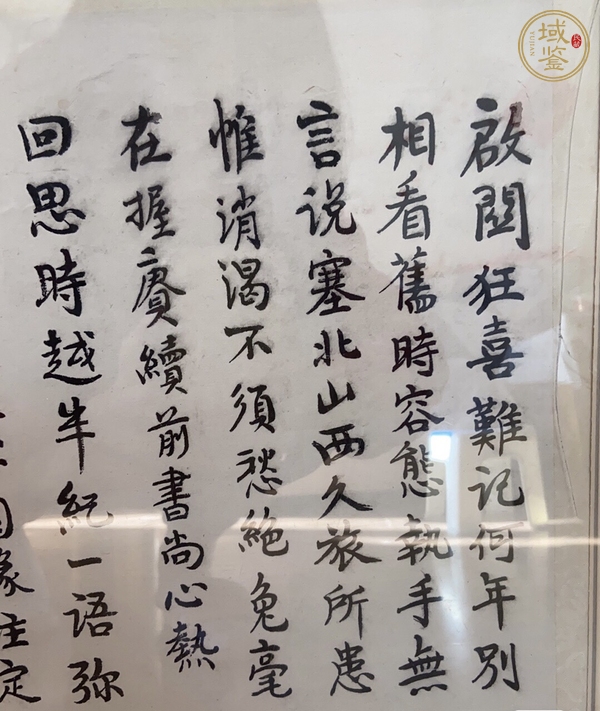 啟關狂喜難記何年別
相看舊時容態執手無
言說塞北山西久旅所患
惟消渴不須愁絕兔毫
在握賡續前書尚心熱
回思時越半紀一語弥
因緣注定
域鉴
YUJIAN